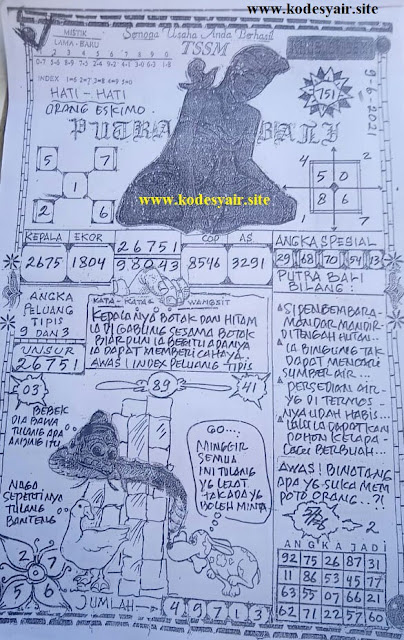 www.kodesyair.site
Semoga Usaha Anda Berhasil
MISTIK
LAMA - BARU
TSSM
INDEX 1=6 2=7 3=8 4=9 5=0
HATI - HATI
ORANG ESKIMO
751
9-6-2021
PUTRA BALI
5 7
1
2 6
4 2
5 0
8 6
1 7
www.kodesyair.site
KEPALA EKOR
2675 1804
26751
98043
COP AS
8546 3291
ANGKA SPESIAL
29 68 70 54 13
PUTRA BALI
BILANG :
ANGKA
PELUANG
TIPIS
9 DAN 3
UNSUR
26751
KATA - KATA WANGSIT
KEPALANYA BOTAK DAN HITAM
IA DI GABUNG SESAMA BOTAK
BIARPUN IA BEGITU ADANYA
IA DAPAT MEMBERI CAHAYA..
AWAS! INDEX PELUANG TIPIS
SI PENGEMBARA
MONDAR MANDIR
DI TENGAH HUTAN...
IA BINGUNG TAK
DAPAT MENCARI
SUMBER AIR...
PERSEDIAN AIR
YG DI TERMOS-
NYA UDAH HABIS...
LALU IA DAPATKAN
POHON KELAPA
BERBUAH...
03
89
41
BEBEK
DIA BAWA
TULANG APA
ANJING ITU
NAGA
SEPERTINYA
TULANG
BANTENG
GO...
MINGGIR
SEMUA
INI TULANG
YG LEZAT
TAK ADA YG
BOLEH MINTA
AWAS! BINATANG
APA YG SUKA MEM
POTO ORANG..?!
2
ANGKA JADI
92 75 26 87 31
11 86 53 45 77
63 55 07 66 21
62 71 22 57 60
2 7
5 6
JUMLAH
4 9 7 1 3